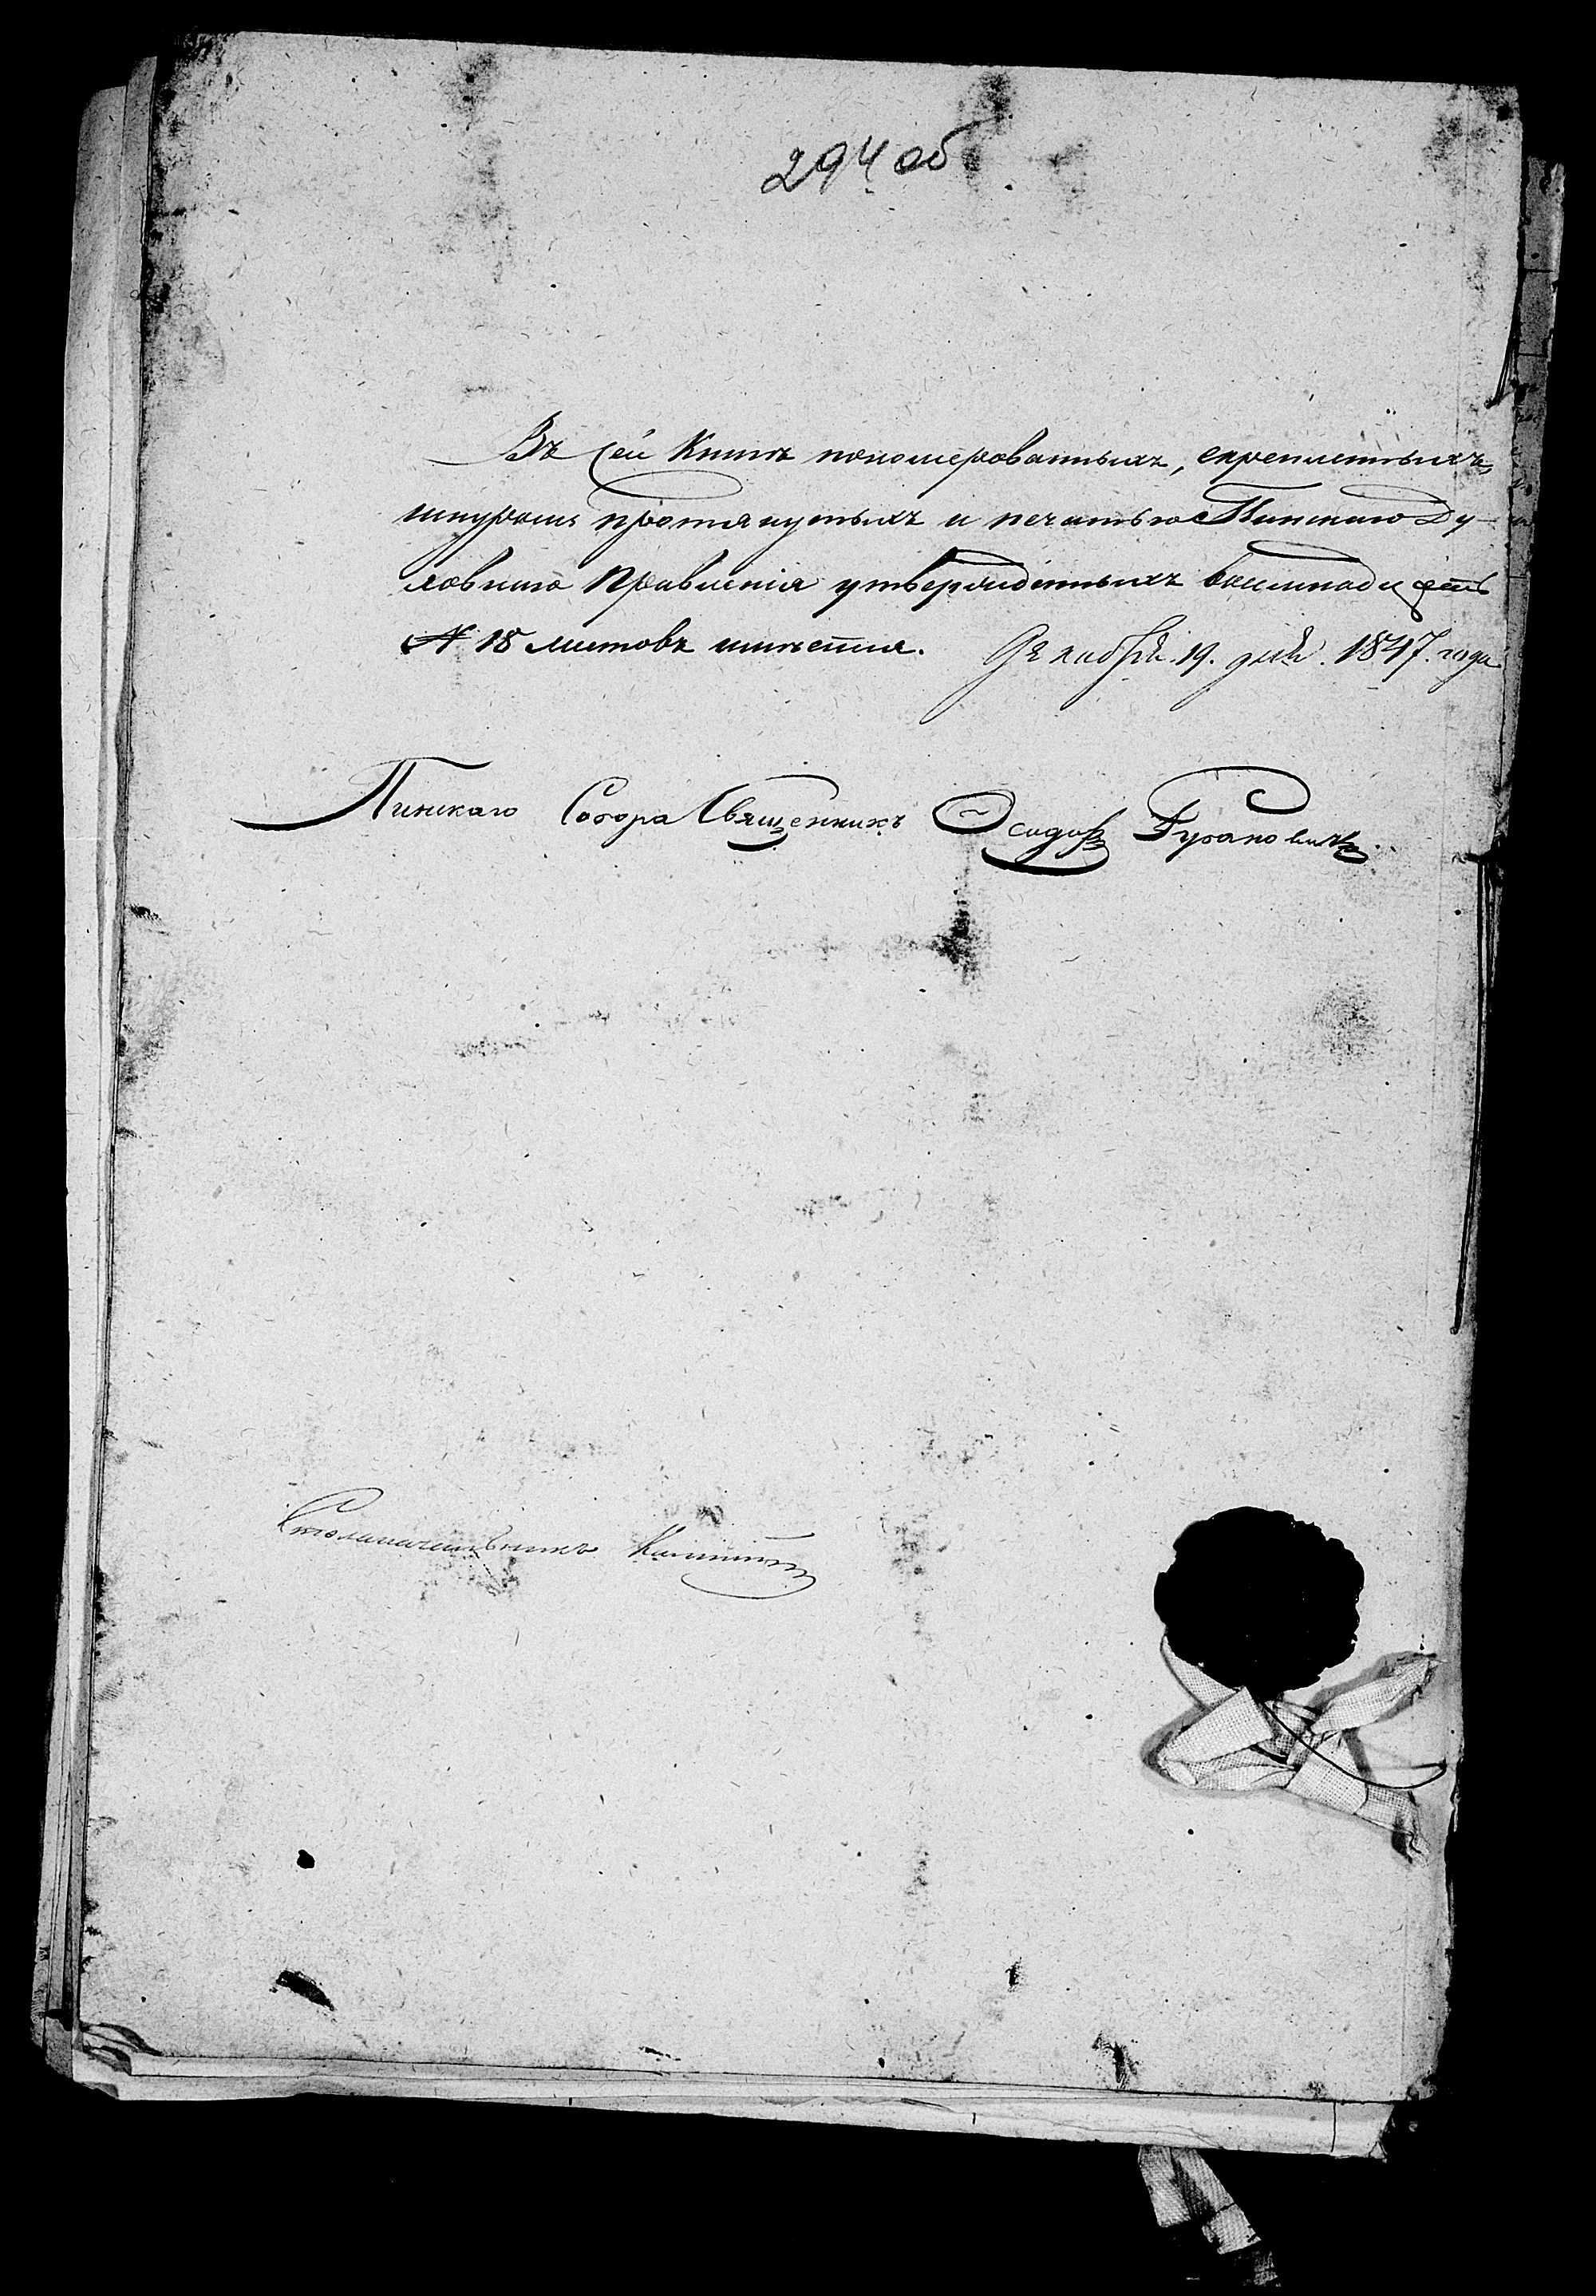 294 об
Въ сей Книгѣ пономерованныхъ, скрепленныхъ,
шнуромъ протянутыхъ и печатью Пинскаго Ду-
ховнаго Правленія утвержденныхъ восемнадцать
№ 18 листовъ имѣется. Декабря 19. дня. 1847. года
Пинскаго Собора Священникъ Ѳеодоръ
Столоначальникъ